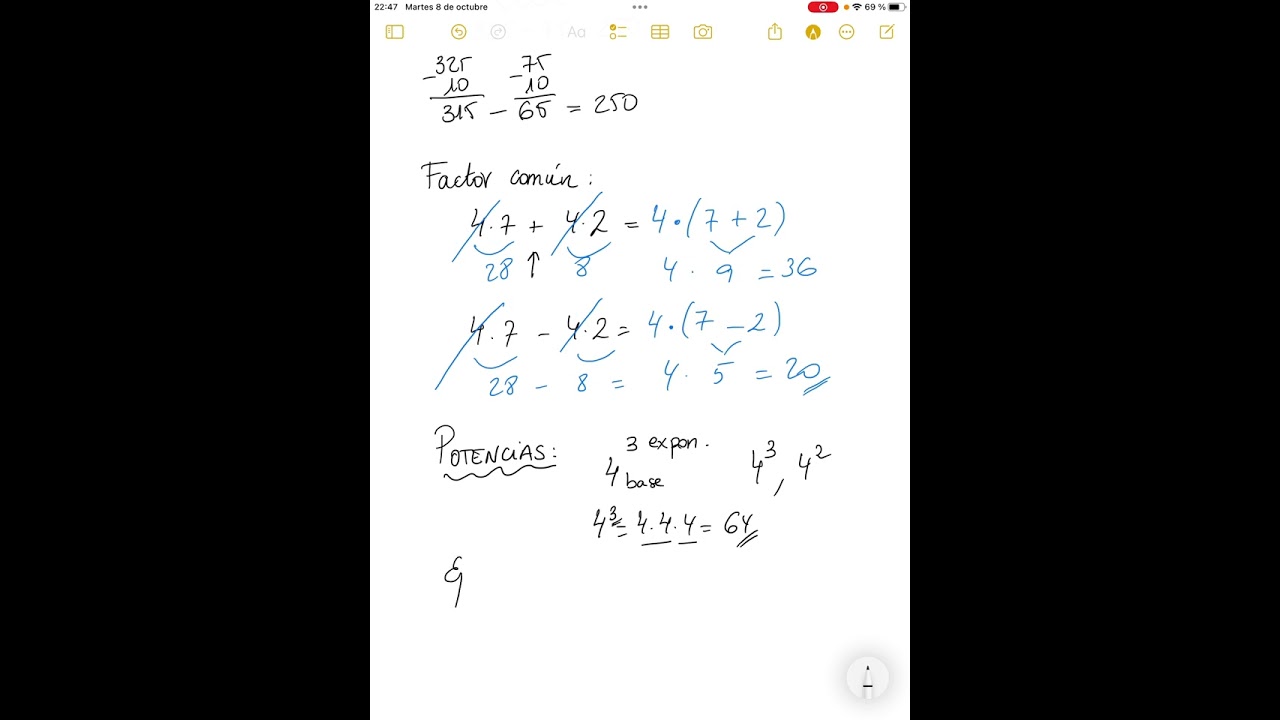 22:47 Martes 8 de octubre 69 %
Aa
-325 -75
10 10
315 - 65 = 250
Factor común:
4·7 + 4·2 = 4·(7+2)
28 ↑ 8 4 · 9 = 36
4·7 - 4·2 = 4·(7-2)
28 - 8 = 4 · 5 = 20
POTENCIAS: 4³ 3 expon. 4 base 4³, 4²
4³ = 4·4·4 = 64